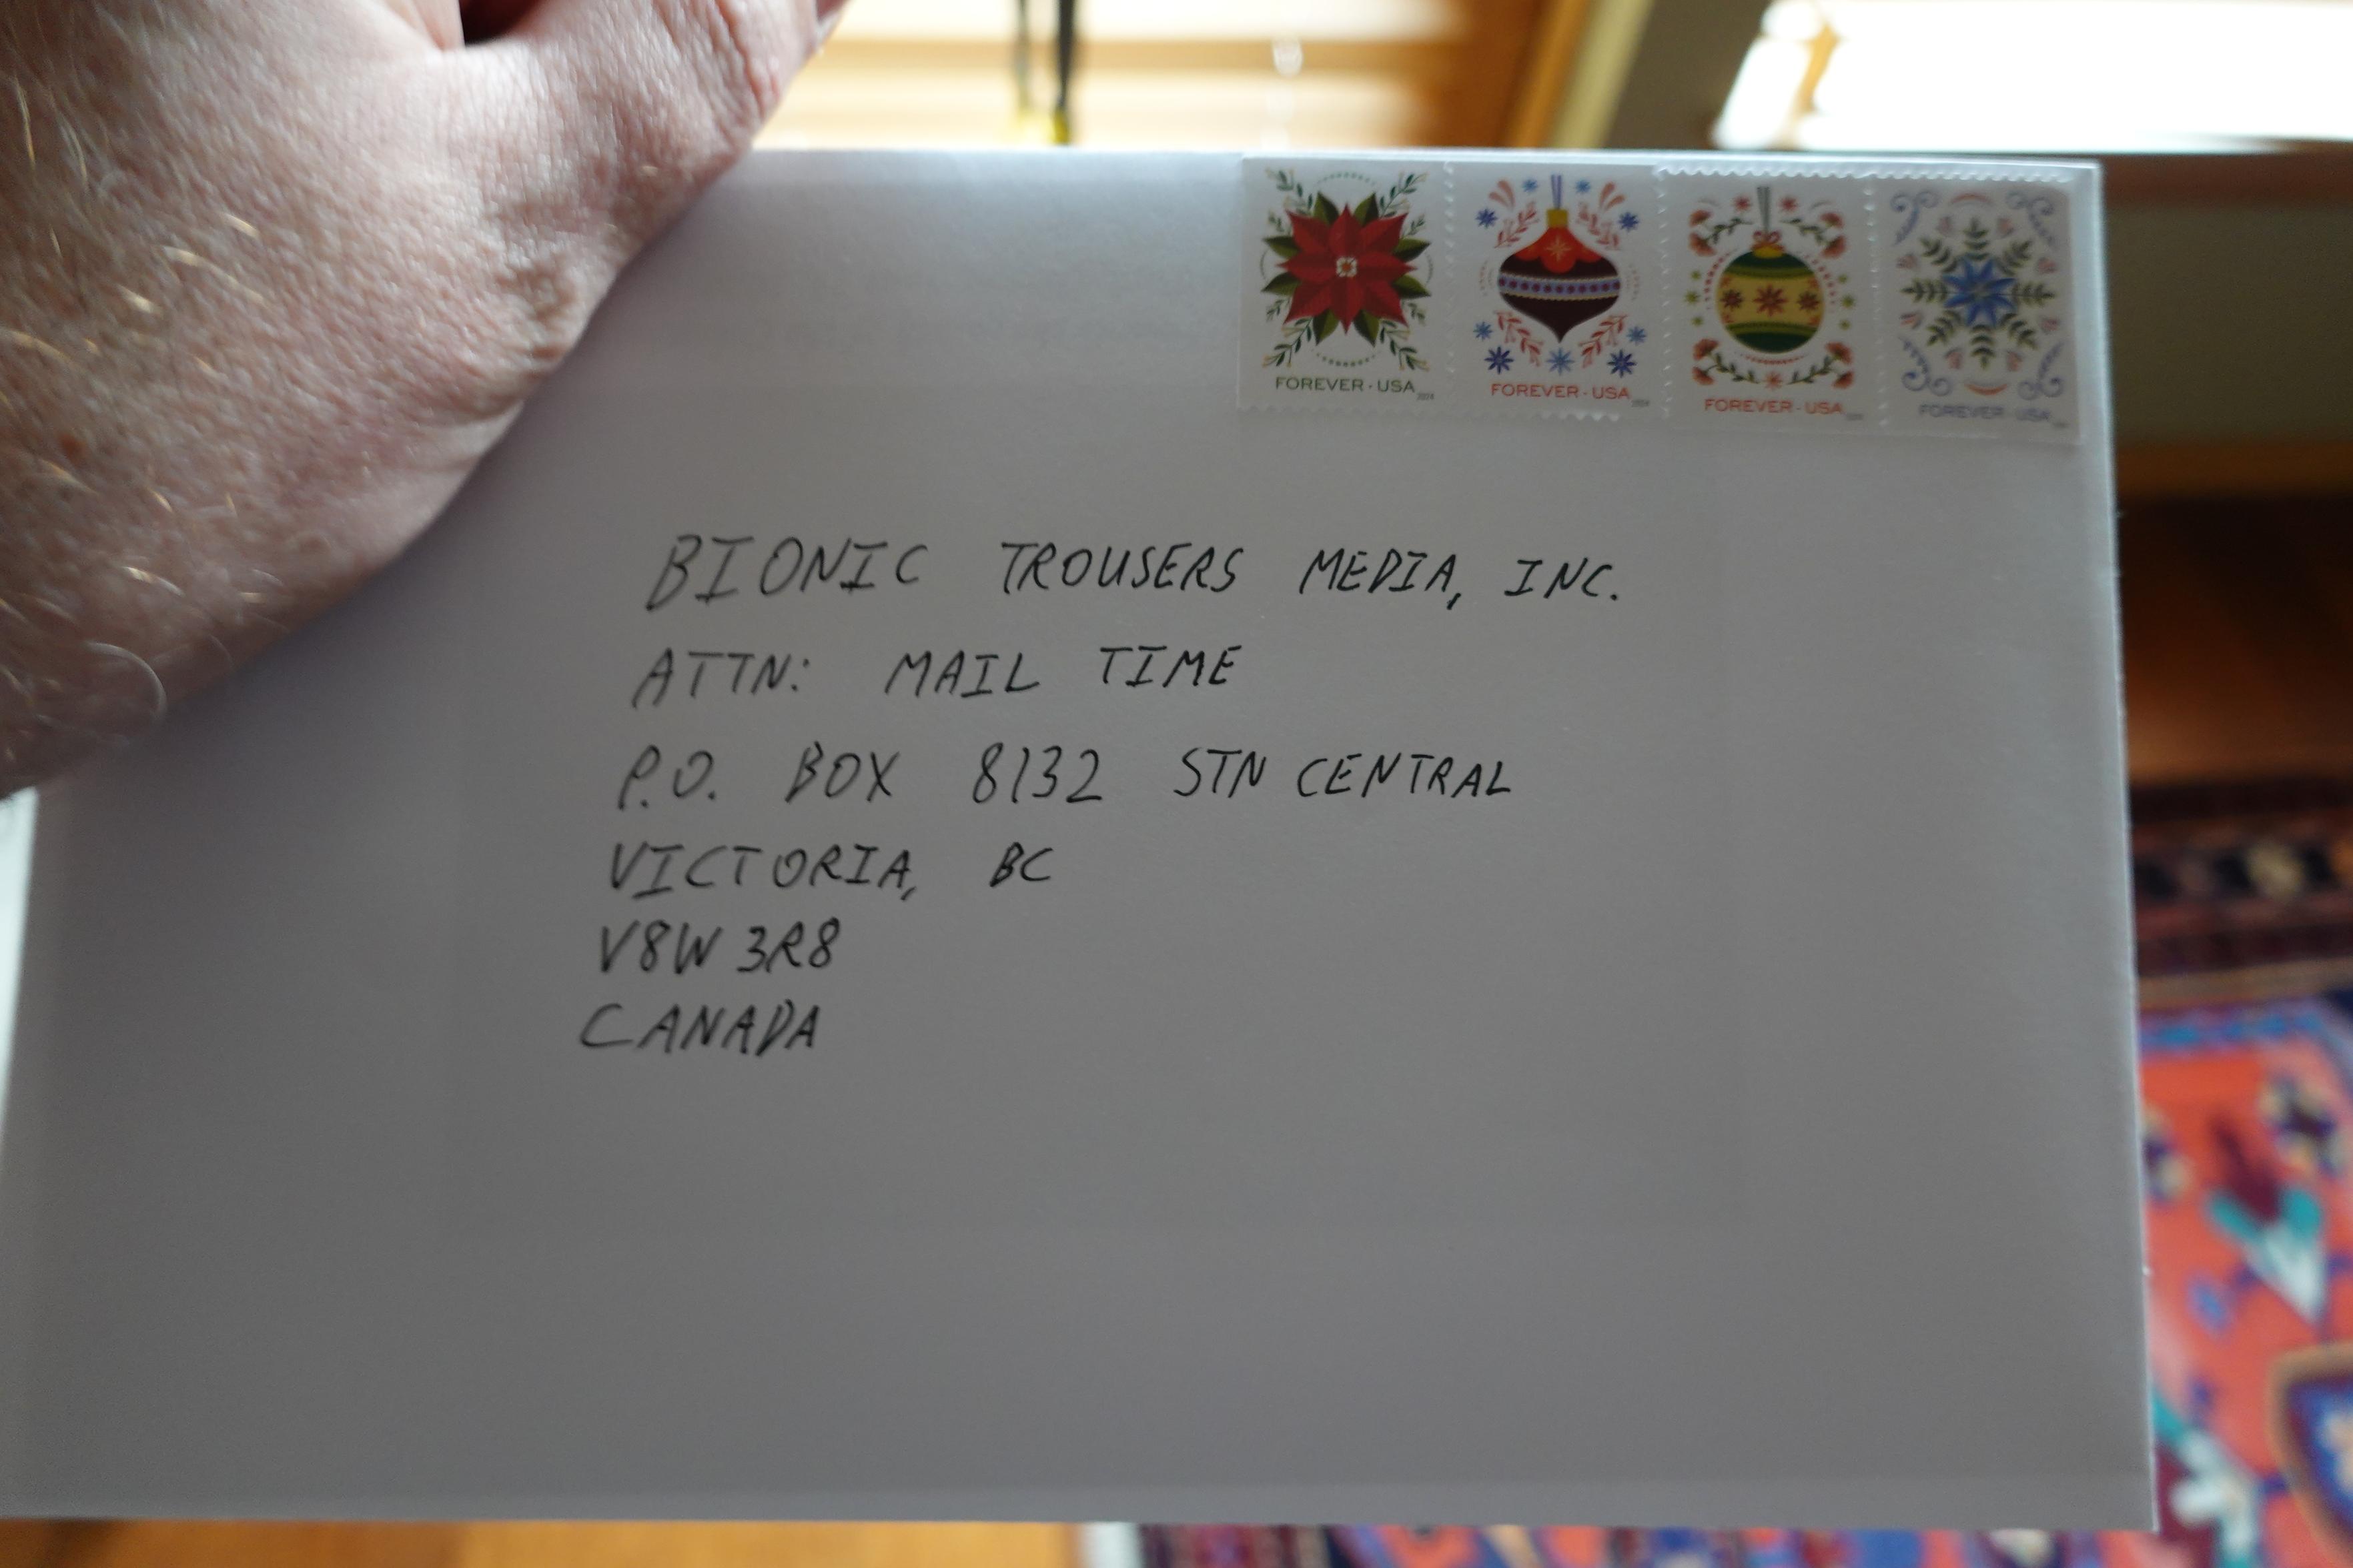 FOREVER · USA 2024 FOREVER · USA 2024 FOREVER · USA FOREVER · USA
BIONIC TROUSERS MEDIA, INC.
ATTN: MAIL TIME
P.O. BOX 8132 STN CENTRAL
VICTORIA, BC
V8W 3R8
CANADA